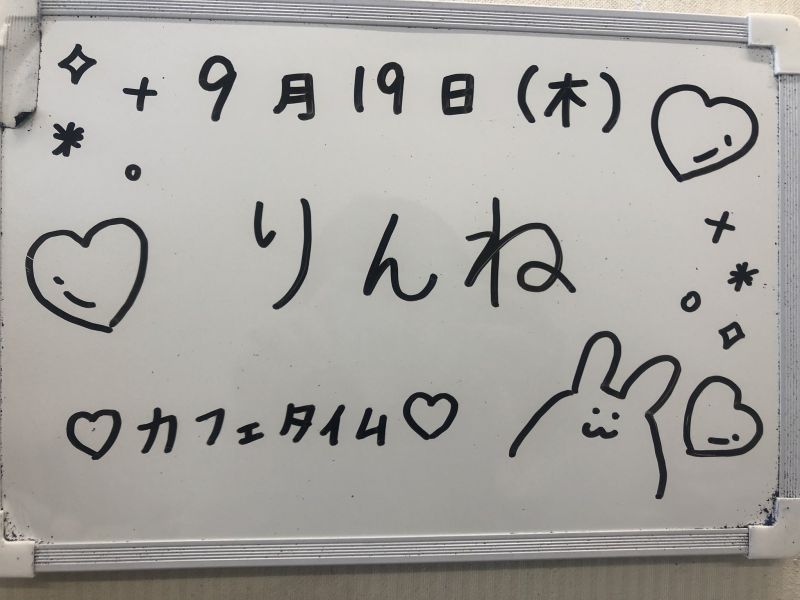 9月19日(木)
りんね
♡カフェタイム♡